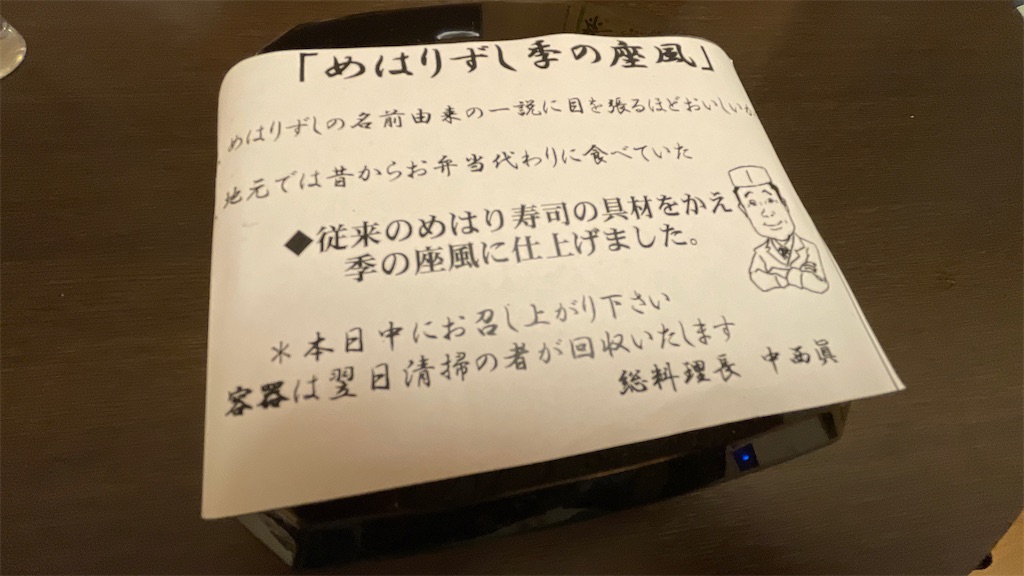 「めはりずし季の座風」
めはりずしの名前由来の一説に目を張るほどおいしいか
地元では昔からお弁当代わりに食べていた
◆従来のめはり寿司の具材をかえ
季の座風に仕上げました。
＊本日中にお召し上がり下さい
容器は翌日清掃の者が回収いたします
総料理長 中西眞